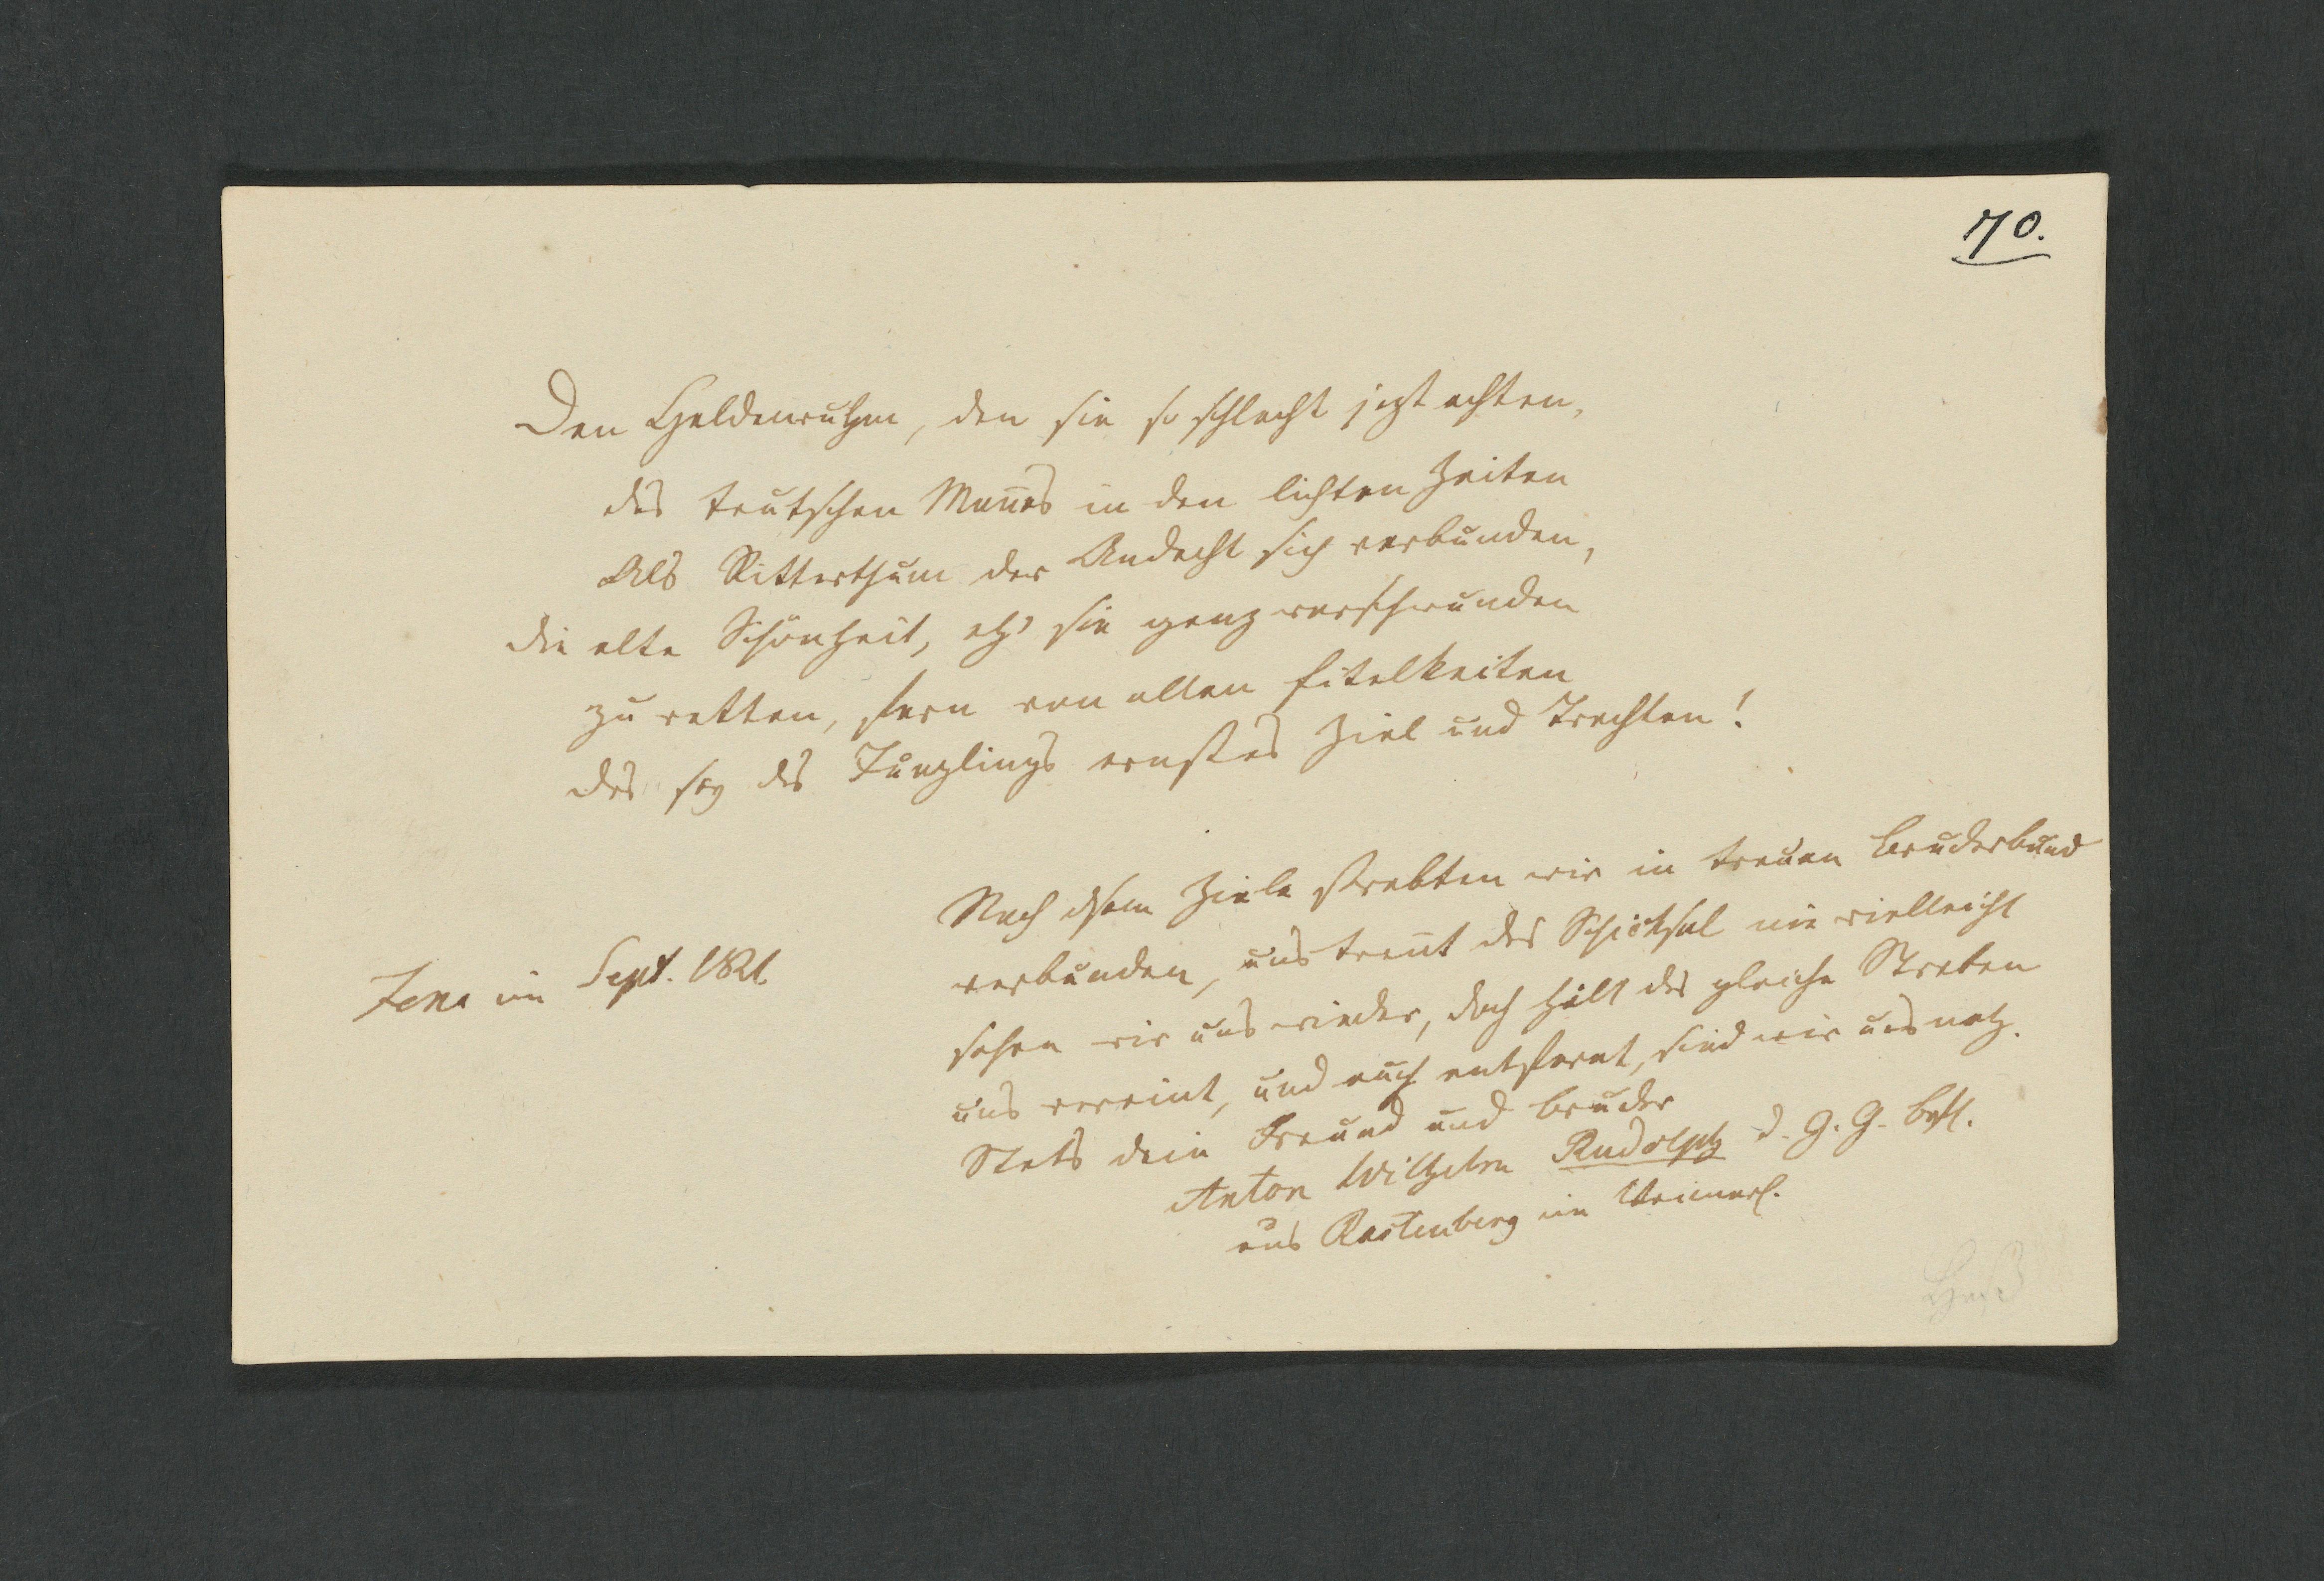 70.
Den Heldenruhm, den sie so schlecht jezt achten,
des teutschen Mañes in den lichten Zeiten
Als Ritterthum der Andacht sich verbunden,
die alte Schönheit, eh' sie ganz verschwunden
zu retten, fern von allen Eitelkeiten
das sey des Jünglings ernstes Ziel und Trachten!
Nach dsem Ziele strebten wir in treuen Bruderbund
verbunden, uns treñt das Schicksal nie vielleicht
sehen wir uns wieder, doch hält das gleiche Streben
uns vereint, und auch entfernt, sind wir uns nah.
Stets dein Freund und Bruder
Anton Wilhelm Rudolph d. G. G. Bfl.
aus Rastenberg im Weimarſ.
Jena im Sept. 1821.